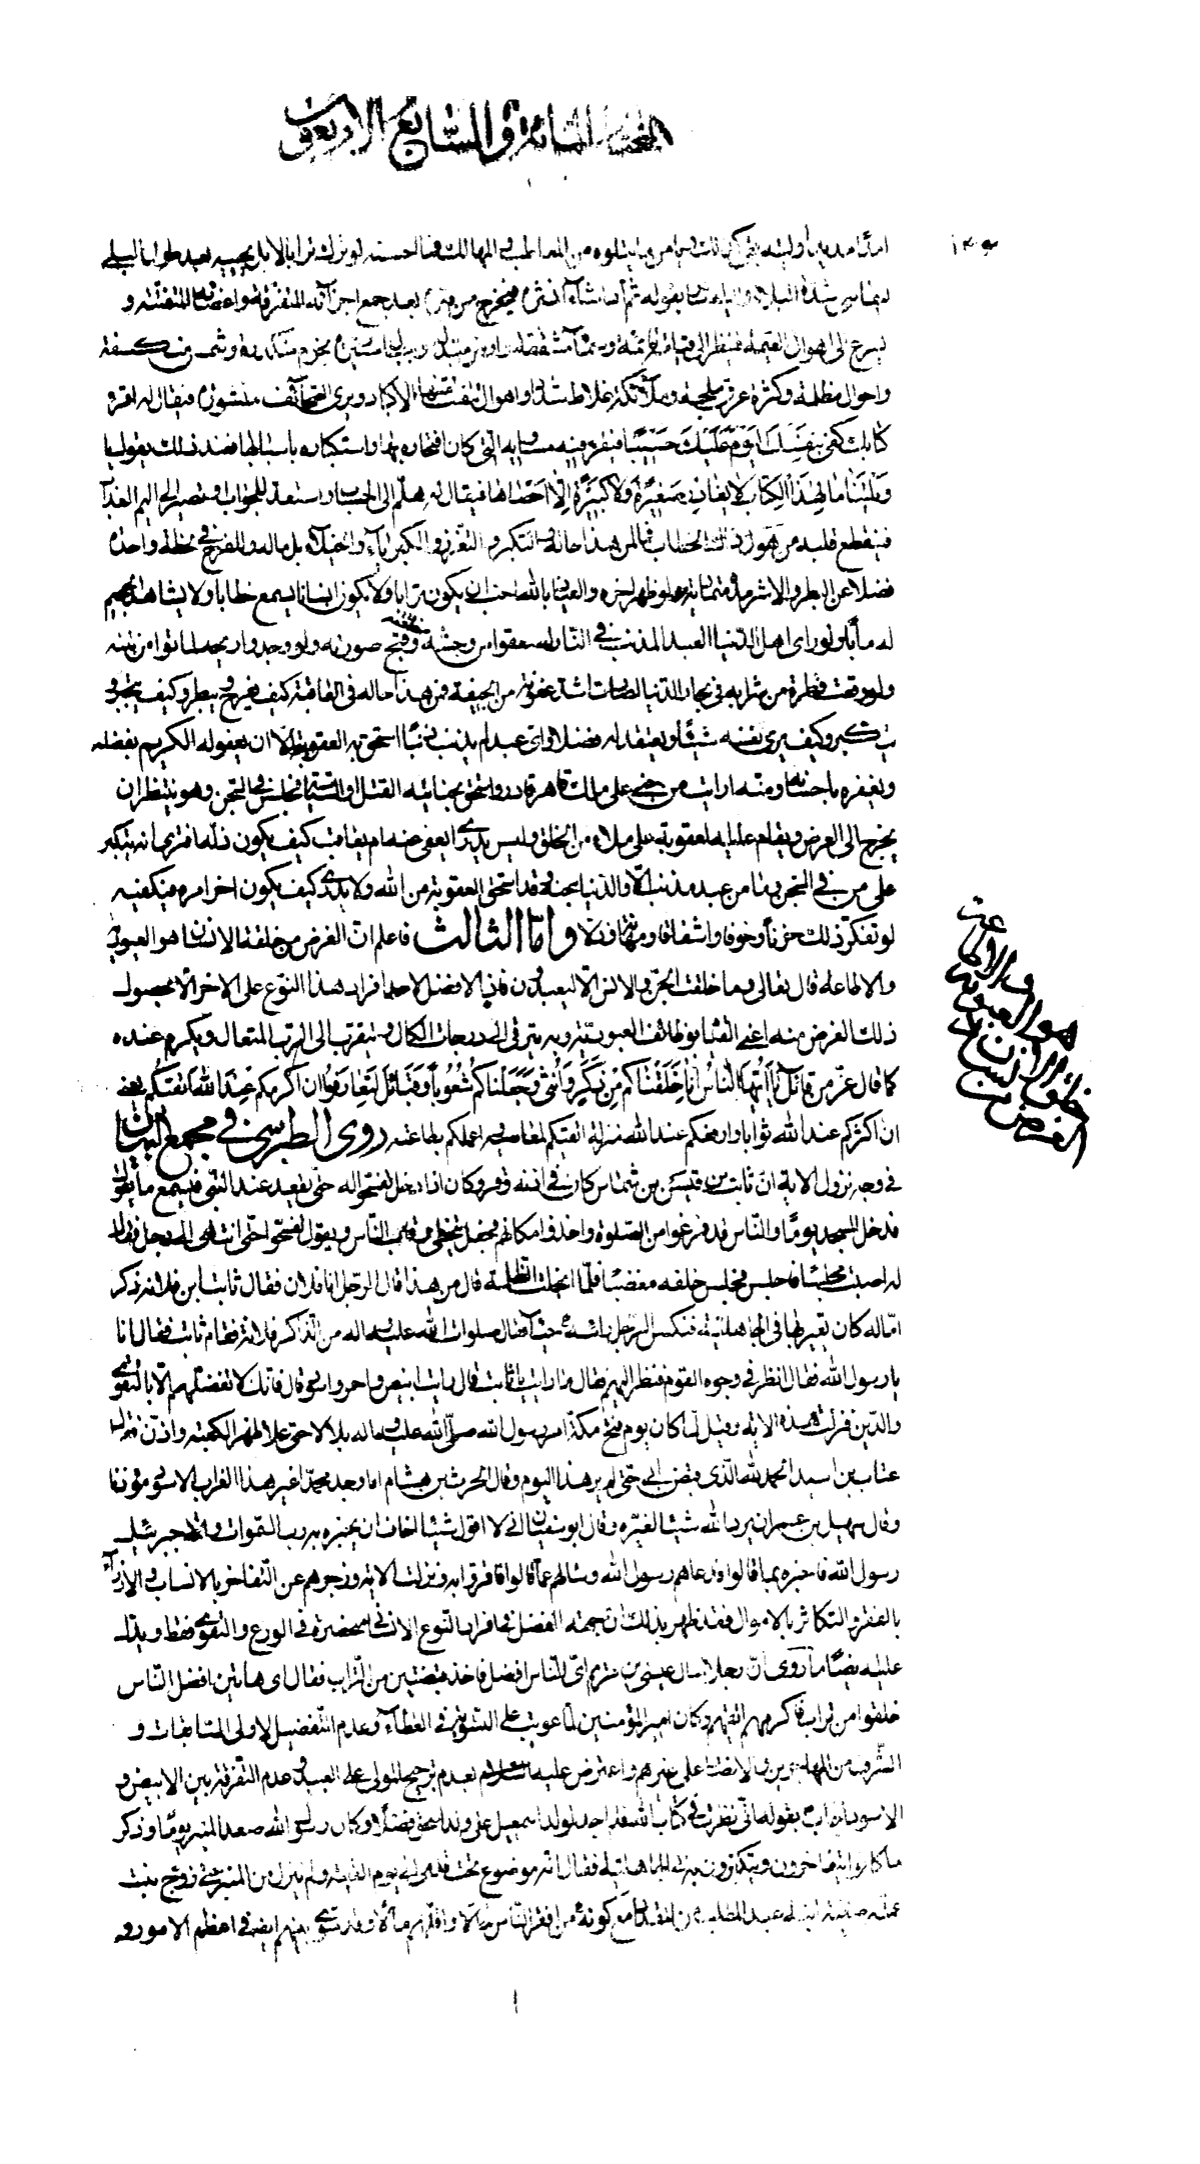 المائة والسابع الاربعون
واحوال مظلمة وكثرة عرق ملجمة وملائكة غلاظ شداد واهوال الاكباد ويرى الصحائف منشورة فيقال له اقرء
كتابك كفى بنفسك اليوم عليك حسيبا فيقرء فيه مساويه التي كان افتخاره بها واستكباره باسبابها فعند ذلك يقول يا
ويلتنا ما لهذا الكتاب لا يغادر صغيرة ولا كبيرة الا احصاها فيقال له هلم الى الحساب واستعد للجواب او تصير الى اليم العذاب
فينقطع قلبه من هول ذلك الخطاب فما لمن هذا حاله والتكبر والتعزز والكبرياء والخيلاء بل ماله وللفرح في لحظة واحدة
فضلا عن البطر والاشر ولو ظهر اخره والعياذ بالله احب ان يكون ترابا ولا يكون انسانا يسمع خطابا ولا يشاهد الجحيم
له مأبا ولو راى اهل الدنيا العبد المذنب في النار لصعقوا من وحشة خلقته وقبح صورته ولو وجدوا ريحه لماتوا من نتنه
ولو وقعت قطرة من شرابه في بحار الدنيا لصارت اشد عفونة من الجيفة فمن هذا حاله في العاقبة كيف يفرح ويبطر وكيف يتجبر و
يتكبر وكيف يرى نفسه شيئا ويعتقد له فضلا واى عبد لم يذنب ذنبا استحق به العقوبة الا ان يعفو له الكريم بفضله
ويغفره باحسانه ومنه ارايت من جنى على ملك قاهر قادر واستحق بجنايته القتل او فحبس في السجن وهو ينتظر ان
يخرج الى العرض ويقام عليه العقوبة على ملاء من الخلق وليس يدرى ايعفى عنه ام يعاقب كيف يكون ذله افترى انه يتكبر
على من في السجن وما من عبد مذنب الا والدنيا سجنه قد استحق العقوبة من الله ولا يدرى كيف يكون اخر امره فيكفيه
لو تفكر ذلك حزنا وخوفا واشفاقا ومهانة وذلا واما الثالث فاعلم ان الغرض من خلقة الانسان هو العبودية
والاطاعة قال تعالى وما خلقت الجن والانس الا ليعبدون فلا فضل لاحد افراد هذا النوع على الاخر الا بحصول
ذلك الغرض منه اعنى القيام بوظائف العبودية وبه يترقى الى درجات الكمال ويتقرب الى الرب المتعال ويكرم عنده
كما قال عز من قائل يا ايها الناس انا خلقناكم من ذكر وانثى وجعلناكم شعوبا وقبائل لتعارفوا ان اكرمكم عند الله اتقيكم يعنى
ان اكثركم عند الله ثوابا وارفعكم عند الله منزلة اتقيكم لمعاصيه اعملكم بطاعته روى الطبرسى في مجمع البيان
في وجه نزول الاية ان ثابت بن قيس بن شماس كان في اذنه وقر وكان اذا دخل تفسحوا له حتى يقعد عند النبى فيسمع ما يقول
فدخل المسجد يوما والناس قد فرغوا من الصلوة واخذوا مكانهم فجعل يتخطى رقاب الناس ويقول تفسحوا حتى انتهى الى رجل فقال
له اصبت مجلسا فاجلس فجلس خلفه مغضبا فلما انجلت الظلمة قال من هذا قال الرجل انا فلان فقال ثابت ابن فلانة ذكر
اما له كان يعير بها في الجاهلية فنكس الرجل راسه حياء فقال صلوات الله عليه واله من الذاكر فلانة فقام ثابت فقال انا
يا رسول الله فقال انظر في وجوه القوم فنظر اليهم فقال ما رايت يا ثابت قال رايت ابيض واحمر واسود قال فانك لا تفضلهم الا بالتقوى
والدين فنزلت هذه الاية وقيل لما كان يوم فتح مكة امر رسول الله صلى الله عليه واله بلالا حتى علا ظهر الكعبة واذن فقال
عتاب بن اسيد الحمد لله الذى قبض ابى حتى لم ير هذا اليوم وقال الحرث بن هشام اما وجد محمد غير هذا الغراب الاسود مؤذنا
وقال سهيل بن عمرو ان يرد الله شيئا لغيره وقال ابو سفيان انى لا اقول شيئا اخاف ان يخبره به رب السموات فاتى جبرئيل
رسول الله فاخبره بما قالوا فدعاهم رسول الله وسالهم عما قالوا فاقروا به ونزلت الاية وزجرهم عن التفاخر بالانساب والازراء
بالفقر والتكاثر بالاموال فقد ظهر بذلك ان جهة الفضل في افراد النوع الانسانى منحصرة في الورع والتقوى فقط ويدل
عليه ايضا ما روى ان رجلا سال عيسى بن مريم اى الناس افضل فاخذ قبضتين من التراب فقال اى هاتين افضل الناس
خلقوا من تراب فاكرمهم اتقيهم وكان امير المؤمنين لما عوتب على التسوية في العطاء وعدم التفضيل لاولى السابقات و
الشرف من المهاجرين والانصار على غيرهم واعترض عليه بعدم ترجيح المولى على العبد وعدم التفرقة بين الابيض و
الاسود اجاب بقوله انى نظرت في كتاب الله فلم اجد لولد اسمعيل على ولد اسحق فضلا وكان رسول الله صعد المنبر يوما وذكر
ما كانوا يتفاخرون ويتكبرون به في الجاهلية فقال انه موضوع تحت قدمى الى يوم القيمة ولم ينزل من المنبر حتى زوج بنت
الغرض من
خلقة الانسان
هو العبودية
والاطاعة